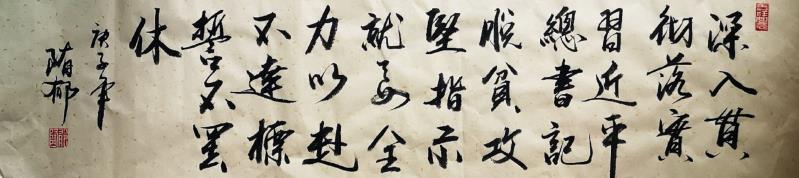 深入貫
彻落實
習近平
總書記
脱貧攻
堅指示
就要全
力以赴
不達標
誓不罢
休
庚子年